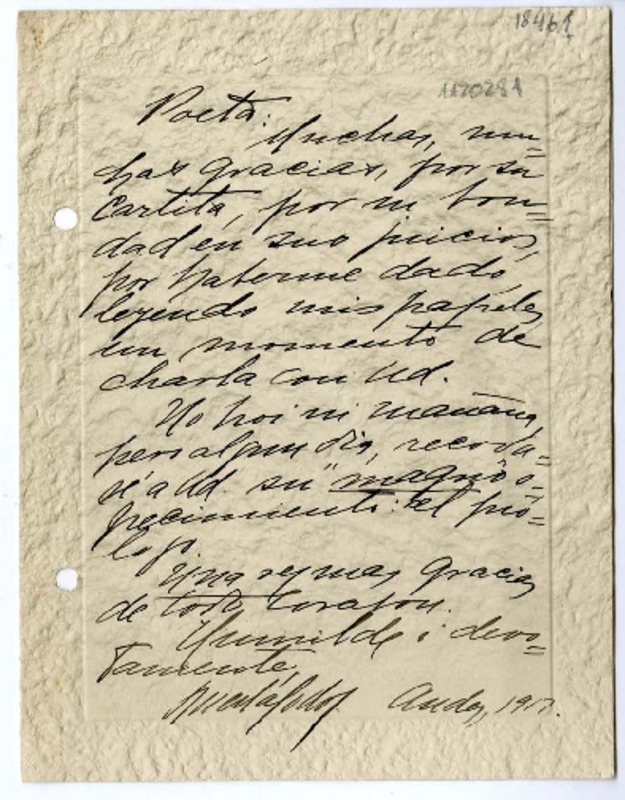 18461
1120281
Poeta:
Muchas, mu=
chas gracias, por su
cartita, por su bon=
dad en sus juicios,
por haberme dado,
leyendo mis papeles,
un momento de
charla con Ud.
No hoi ni mañana,
pero algun dia, recorda=
ré a Ud. su "magno o=
frecimiento: el pró=
logo.
Una vez mas gracias
de todo corazon.
Humilde i devo=
tamente,
Andes, 191